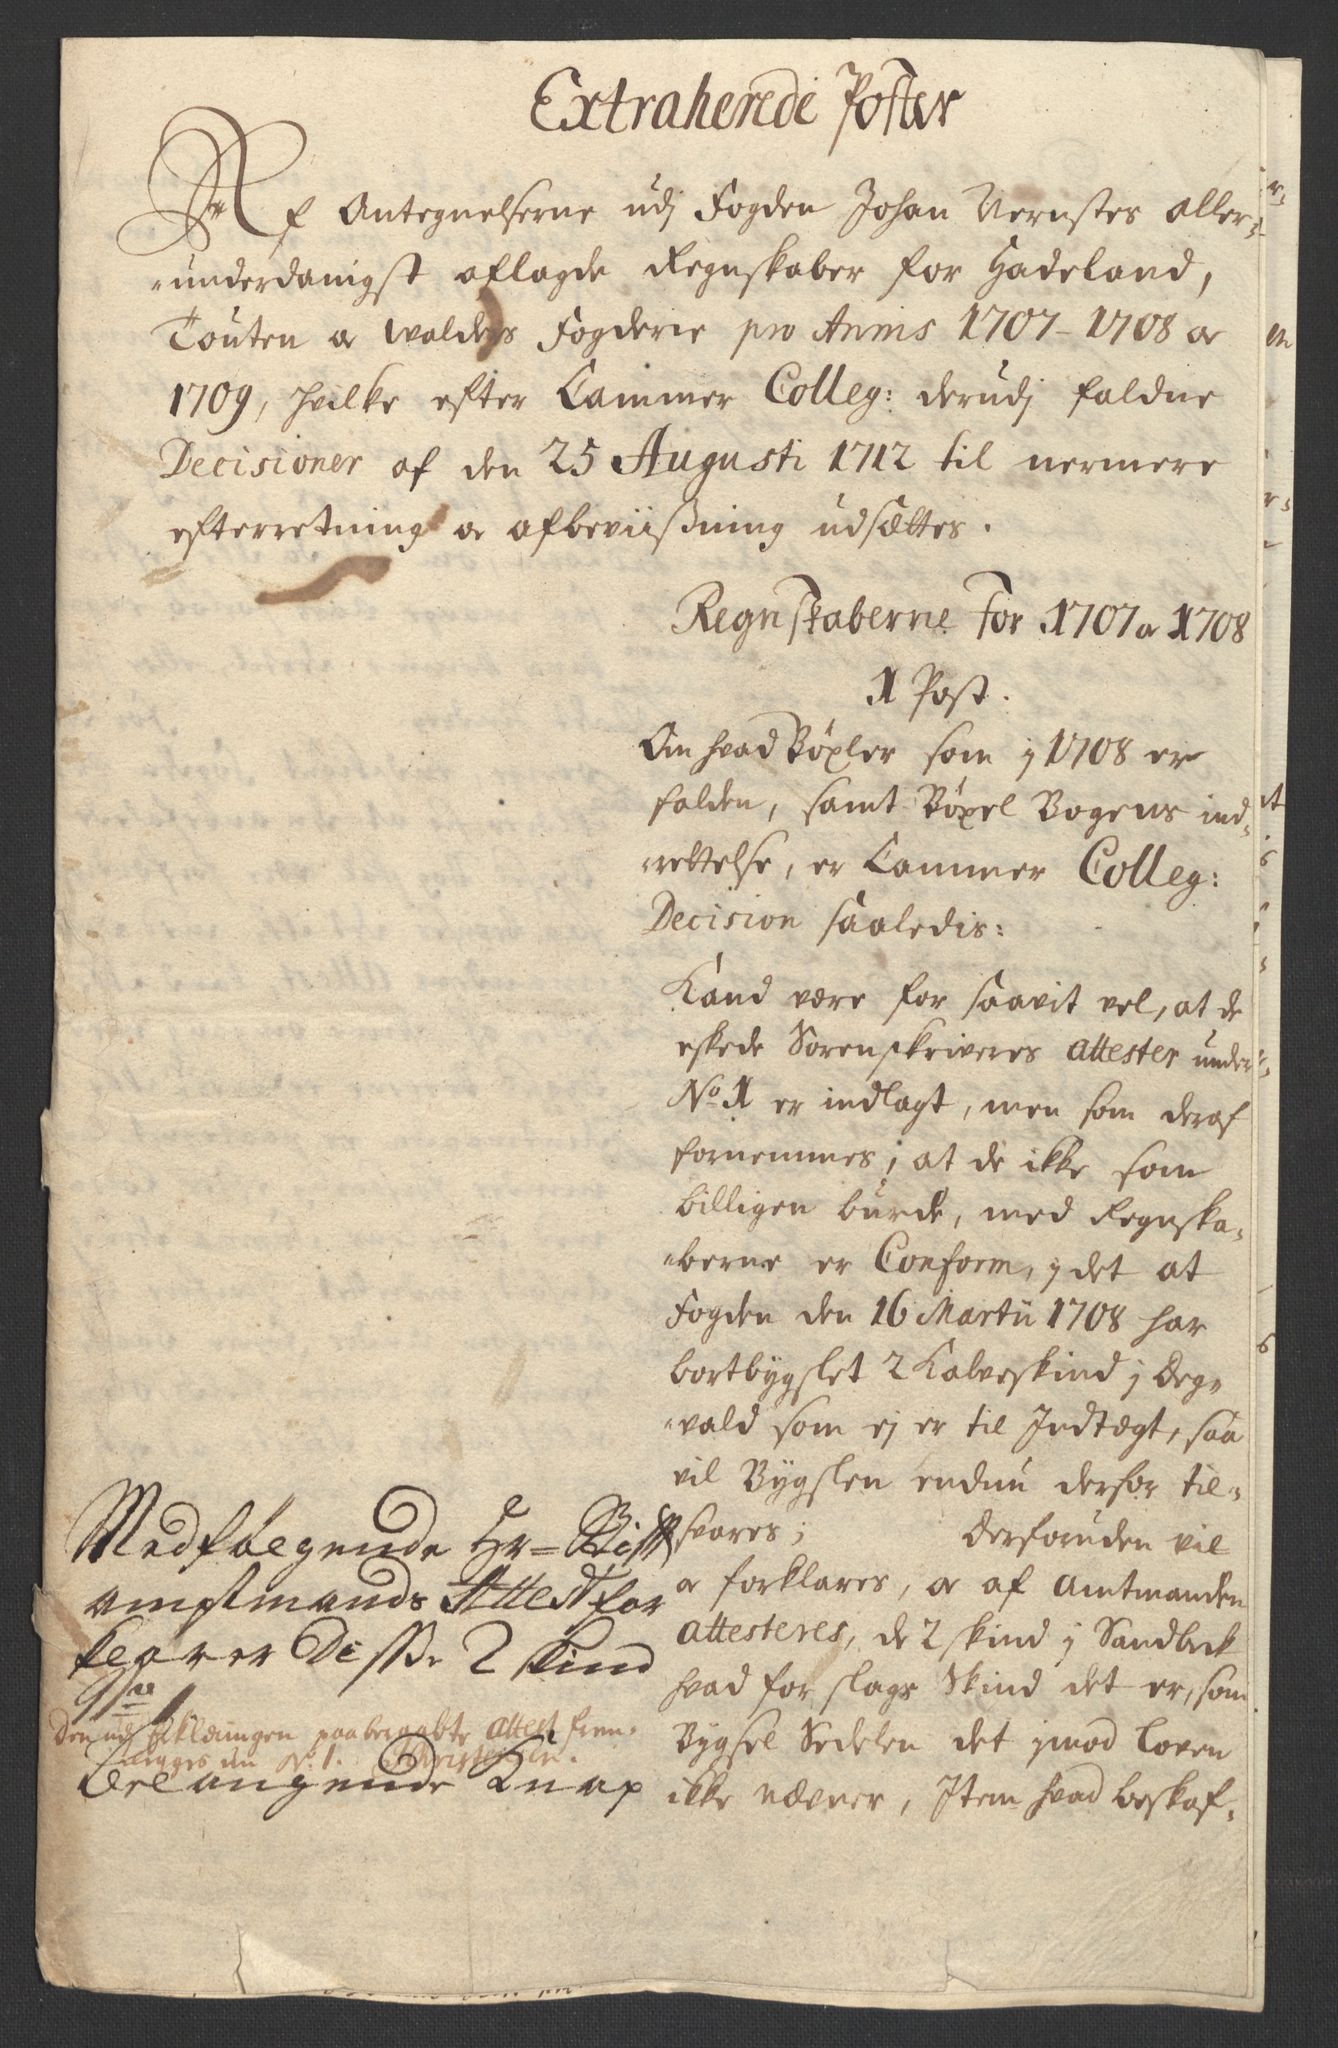 Extraherede Poster
Af Antegnelserne udj Fogden Johan Vernstes aller-
underdanigst aflagde Regnskaber for Hadeland,
Touten & Walders Fogderie pro Annis 1707-1708 &
1709, hvilke efter Cammer Colleg: derudj faldne
Decisioner af den 25 Augusti 1712 til nermere
efterretning & afbeviisßning udsættes.
Regnskaberne for 1707 & 1708
1 Post.
Om hvad Bøxler som j 1708 er
falden, samt Bøxel Bogens ind-
rettelse, er Cammer Colleg:
Decision saaledis:
Kand være for saavit vel, at de
eskede Sorenskriveres attester under
No. 1 er indlagt, men som deraf
fornemmes, at de ikke som
billigen burde, med Regnska-
berne er Conform, j det at
Fogden den 16 Martii 1708 har
bortbygslet 2 Kalveskind j Deg-
vald som ej er til Indtægt, saa
vil Bygslen endnu derfor til-
svares; Derforuden vil
& forklares, & af Amtmanden
attesteres, de 2 skind j Sandbek
hvad for slags Skind det er, som
Bygsel Sedelen det jmod Loven
ikke nævner, Item hvad beskaf-
Medfølgende Hr= Stift
amptmands Attest for
klarer Disße 2 skind
Den ud j erklæringen paaberaabte attest frem-
legges un No. 1.
Belangende Knap